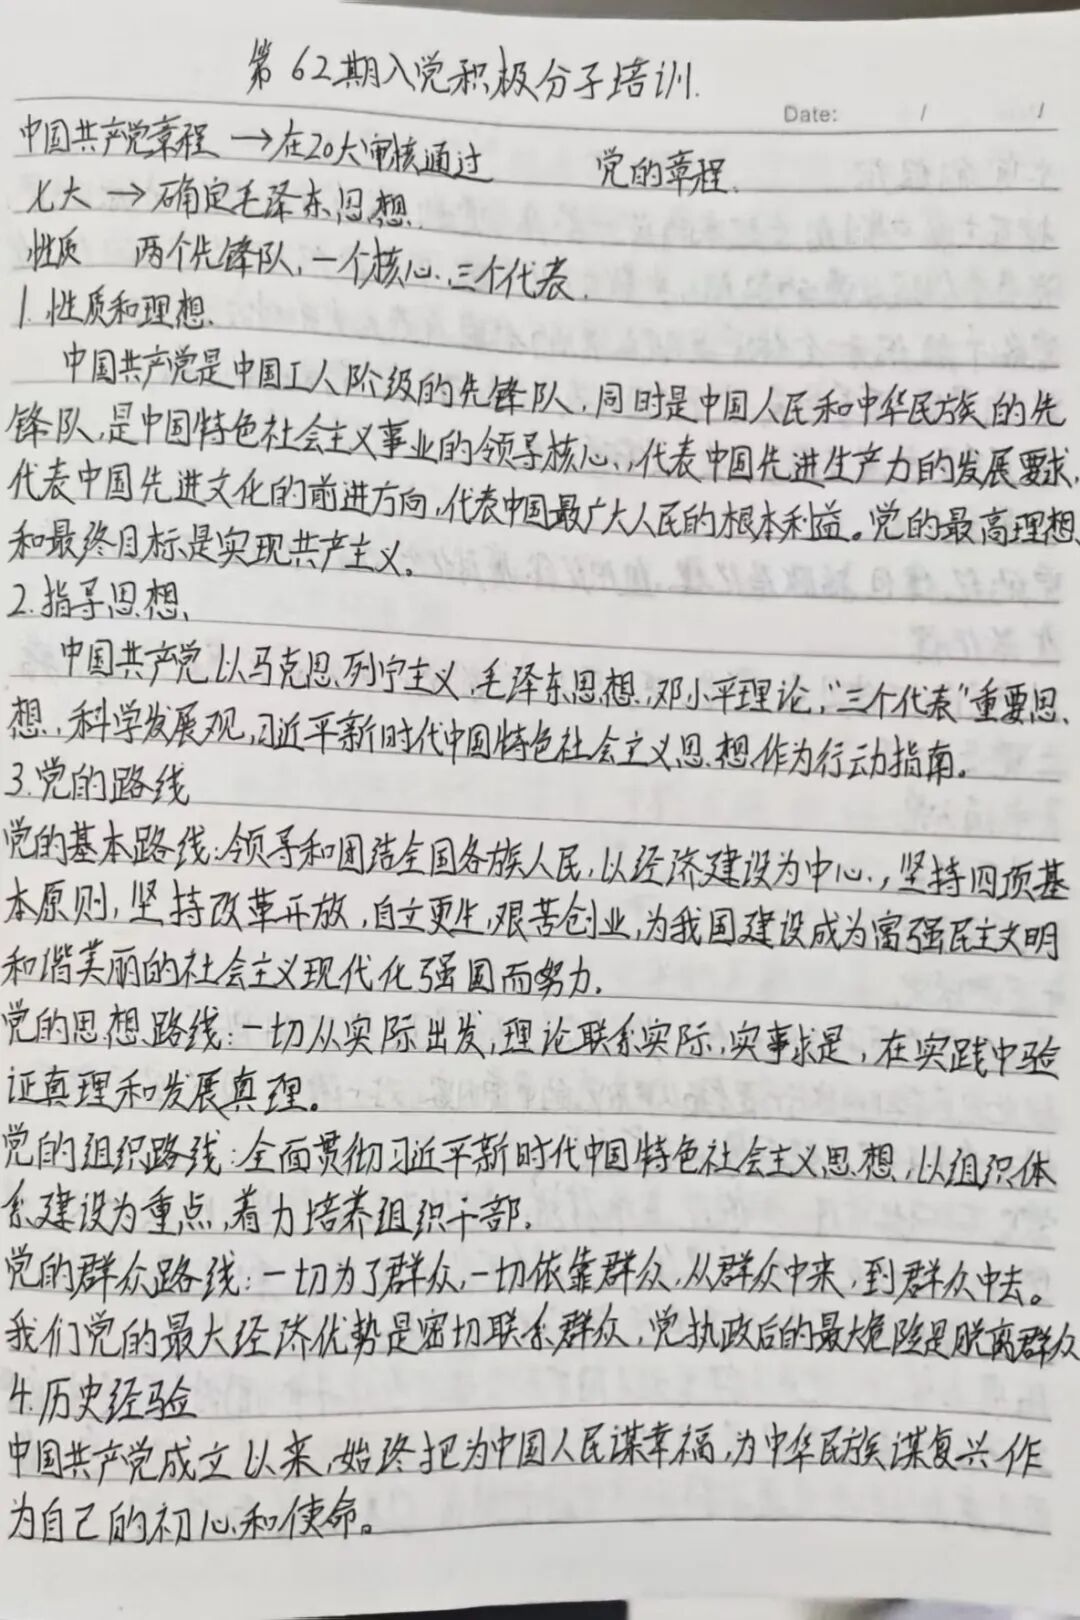 第62期入党积极分子培训.
Date: / /
中国共产党章程 →在20大审核通过 党的章程.
七大 → 确定毛泽东思想.
性质 两个先锋队,一个核心,三个代表.
1.性质和理想.
中国共产党是中国工人阶级的先锋队,同时是中国人民和中华民族的先
锋队,是中国特色社会主义事业的领导核心,代表中国先进生产力的发展要求,
代表中国先进文化的前进方向,代表中国最广大人民的根本利益。党的最高理想
和最终目标是实现共产主义。
2.指导思想、
中国共产党以马克思列宁主义,毛泽东思想,邓小平理论,“三个代表”重要思
想,科学发展观,习近平新时代中国特色社会主义思想作为行动指南。
3.党的路线
党的基本路线:领导和团结全国各族人民,以经济建设为中心,坚持四项基
本原则,坚持改革开放,自立更生,艰苦创业,为我国建设成为富强民主文明
和谐美丽的社会主义现代化强国而努力.
党的思想路线:一切从实际出发,理论联系实际,实事求是,在实践中验
证真理和发展真理。
党的组织路线:全面贯彻习近平新时代中国特色社会主义思想,以组织体
系建设为重点,着力培养组织干部.
党的群众路线:一切为了群众,一切依靠群众,从群众中来,到群众中去。
我们党的最大经济优势是密切联系群众,党执政后的最大危险是脱离群众
4.历史经验
中国共产党成立以来,始终把为中国人民谋幸福,为中华民族谋复兴作
为自己的初心和使命。